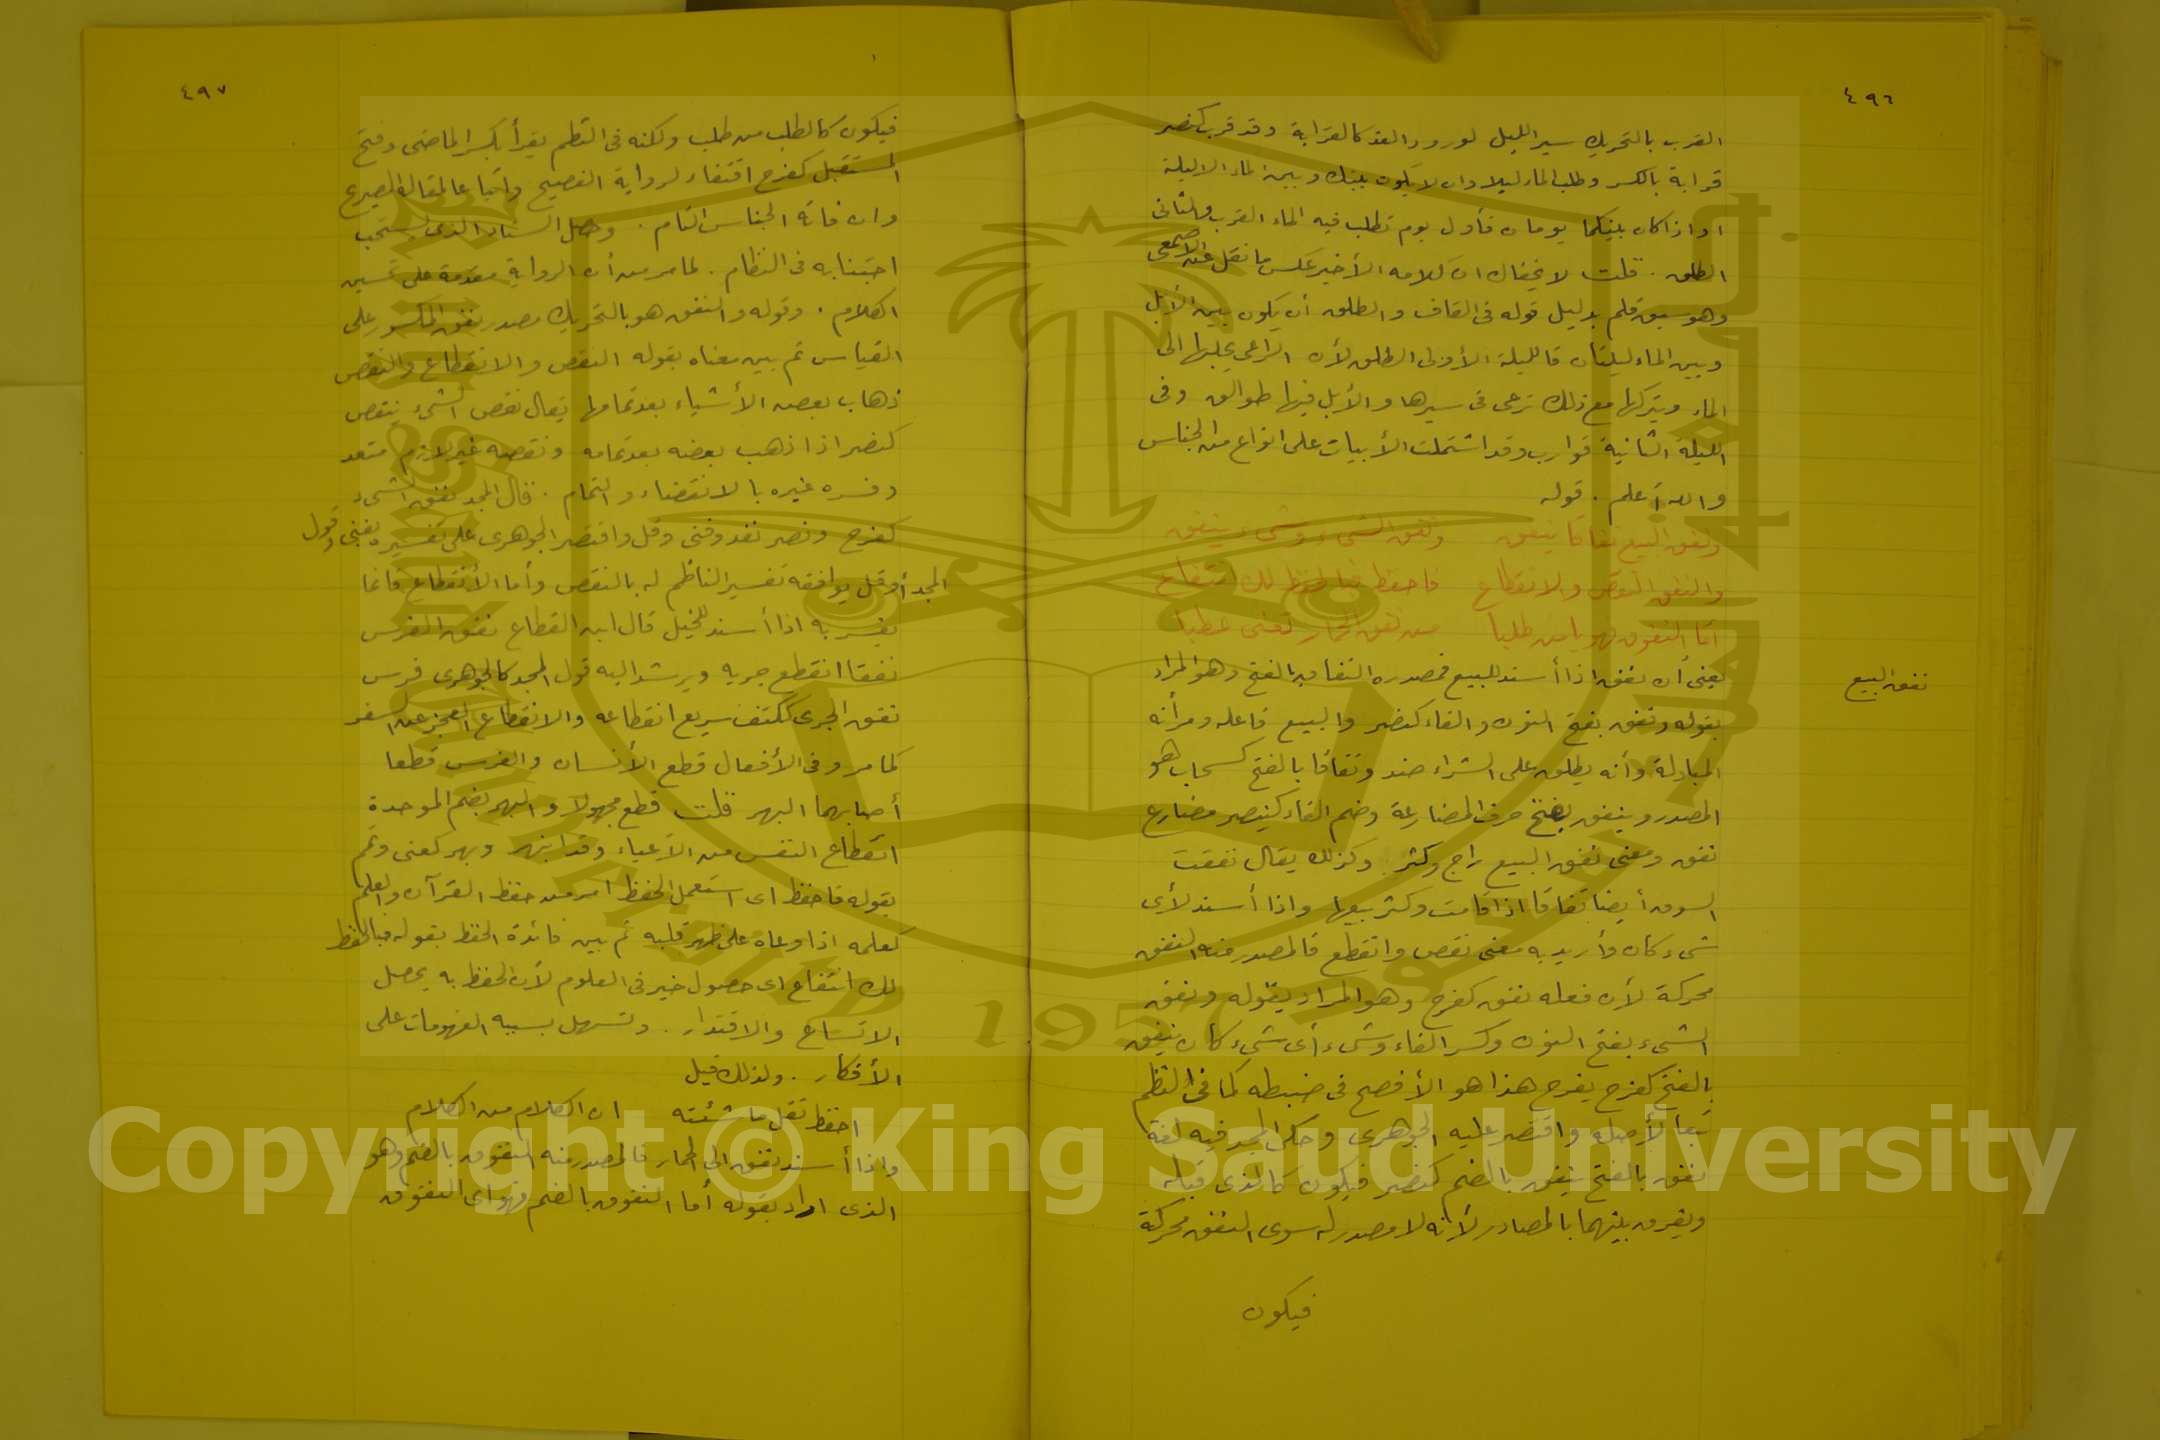 ٤٩٦
القرب بالتحريك سير الليل لورود الغد كالقرابة وقد قرب كنصر
قرابة بالكسر وطلب الماء ليلا وان لا يكون بينك وبين الماء الا ليلة
او اذا كان بينكما يومان فأول يوم تطلب فيه الماء القرب والثاني
الطلق . قلت لا يخفاك ان كلامه الأخير عكس ما نقل عن الأصمعي
وهو سبق قلم بدليل قوله في القاف والطلق أن يكون بين الأبل
وبين الماء ليلتان فالليلة الأولى الطلق لأن الراعي يخليها الى
الماء ويتركها مع ذلك ترعى في سيرها والأبل فيها طوالق وفي
الليلة الثانية قوارب وقد اشتملت الأبيات على انواع من الجناس
والله أعلم . قوله
ونفق البيع نفاقا ينفق ونفق الشيء وشيء ينفق
والنفق النقص والانقطاع فاحفظ فبالحفظ لك انتفاع
أما النفوق فهو يا من طلبا من نفق الحمار يعنى عطبا
نفق البيع
يعني أن نفق اذا أسند للبيع فمصدره النفاق بالفتح وهو المراد
بقوله ونفق بفتح النون والفاء كنصر والبيع فاعله ومر أنه
المبادلة وأنه يطلق على الشراء ضد ونفاقا بالفتح كسحاب هو
المصدر وينفق بفتح حرف المضارعة وضم الفاء كينصر مضارع
نفق ومعنى نفق البيع راج وكثر . وكذلك يقال نفقت
السوق أيضا نفاقا اذا قامت وكثر بيعها واذا أسند لأى
شيء كان وأريد به معنى نقص وانقطع فالمصدر منه النفق
محركة لأن فعله نفق كفرح وهو المراد بقوله ونفق
الشيء بفتح النون وكسر الفاء وشيء أى شيء كان ينفق
بالفتح كفرح يفرح هذا هو الأفصح في ضبطه كما في النظم
تبعا لأصله واقتصر عليه الجوهري وحكى المجد فيه لغة
نفق بالفتح ينفق بالضم كنصر فيكون كالذى قبله
ويفرق بينهما بالمصادر لأنه لا مصدر له سوى النفق محركة
فيكون
٤٩٧
فيكون كالطلب من طلب ولكنه في النظم يقرأ بكسر الماضى وفتح
المستقبل كفرح اقتفاء لرواية الفصيح واتباعا لمقاله الصريح
وان فاته الجناس التام . وحصل السناد الذى يستحب
اجتنابه في النظام . لما مر من أن الرواية مقدمة على تحسين
الكلام . وقوله والنفق هو بالتحريك مصدر نفق المكسور على
القياس ثم بين معناه بقوله النقص والانقطاع والنقص
ذهاب بعض الأشياء بعد تمامها يقال نقص الشيء ينقص
كنصر اذا ذهب بعضه بعد تمامه ونقصه غير لازم متعد
وفسره غيره بالانقضاء والتمام . قال المجد نفق الشيء
كفرح ونصر نفد وفنى وقل واقتصر الجوهري على تفسيره بفنى وقول
المجد أو قل يوافقه تفسير الناظم له بالنقص وأما الأنقطاع فانما
يفسر به اذا أسند للخيل قال ابن القطاع نفق الفرس
نفقا انقطع جريه ويرشد اليه قول المجد كالجوهري فرس
نفق الجرى ككتف سريع انقطاعه والانقطاع العجز عن السفر
كما مر وفى الأفعال قطع الأنسان والفرس قطعا
أصابهما البهر قلت قطع مجهولا والبهر بضم الموحدة
انقطاع النفس من الأعياء وقد انبهر وبهر كعنى وتمم
بقوله فاحفظ اى استعمل الحفظ امر من حفظ القرآن والعلم
كعلمه اذا وعاه على ظهر قلبه ثم بين فائدة الحفظ بقوله فبالحفظ
لك انتفاع اى حصول خير في العلوم لأن الحفظ به يحصل
الاتساع والاقتدار . وتسهل بسببه الفهومات على
الأفكار . ولذلك قيل
احفظ تقل ما شئته ان الكلام من الكلام
واذا أسند نفق الى الحمار فالمصدر منه النفوق بالضم وهو
الذى اراد بقوله أما النفوق بالضم فهو اى النفوق
Copyright © King Saud University